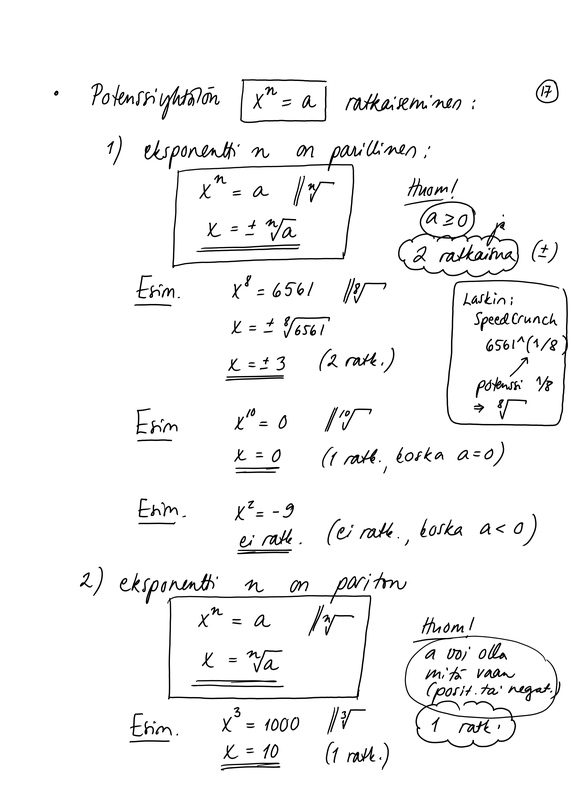 17
• Potenssiyhtälön xⁿ = a ratkaiseminen:
1) eksponentti n on parillinen:
xⁿ = a ‖ ⁿ√
x = ± ⁿ√a
Huom!
a ≥ 0 ja
2 ratkaisua (±)
Esim. x⁸ = 6561 ‖ ⁸√
x = ± ⁸√6561
x = ± 3 (2 ratk.)
Laskin:
SpeedCrunch
6561^(1/8)
potenssi 1/8
⇒ ⁸√
Esim x¹⁰ = 0 ‖ ¹⁰√
x = 0 (1 ratk., koska a = 0)
Esim. x² = -9
ei ratk. (ei ratk., koska a < 0)
2) eksponentti n on pariton
xⁿ = a ‖ ⁿ√
x = ⁿ√a
Huom!
a voi olla
mitä vaan
(posit. tai negat.)
1 ratk.
Esim. x³ = 1000 ‖ ³√
x = 10 (1 ratk.)